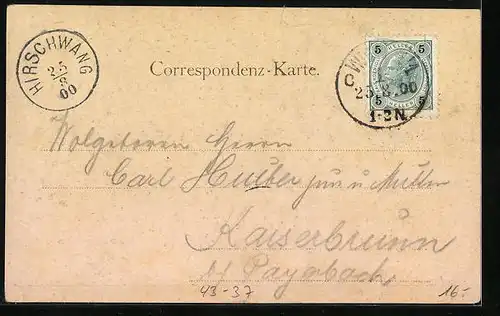 HIRSCHWANG
25/8
00
Correspondenz-Karte.
5 5
WIEN
25.8.00
1-2N
5
Wolgeboren Herrn
Carl Huber jun u Mutter
Kaiserbrunn
b/ Payerbach
43-37
16.-